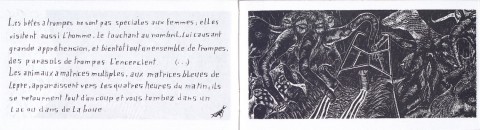 Les bêtes à trompes ne sont pas spéciales aux femmes, elles
visitent aussi l'homme, le touchant au nombril, lui causant
grande appréhension, et bientôt tout un ensemble de trompes,
des parasols de trompes l'encerclent (...)
Les animaux à matrices multiples, aux matrices bleues de
lèpre, apparaissent vers les quatres heures du matin, ils
se retournent tout d'un coup et vous tombez dans un
lac ou dans de la boue